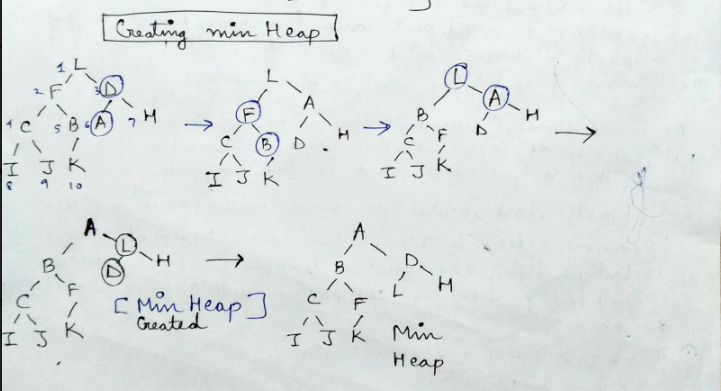 Creating min Heap
1 L
2 F 3 D
4 C 5 B 6 A 7 H
I J K
8 9 10
L
F A
C B D H
I J K
L
B A
C F D H
I J K
A
B L
C F D H
I J K
[Min Heap]
Created
A
B D
C F L H
I J K
Min
Heap